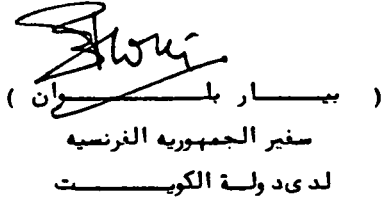 ( بيـــــار بلـــــــــوان )
سفير الجمهوريه الفرنسيه
لدى دولــة الكويـــــــت